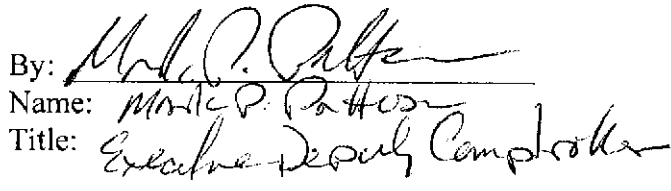 By: Mark P. Pattison
Name: Mark P. Pattison
Title: Executive Deputy Comptroller